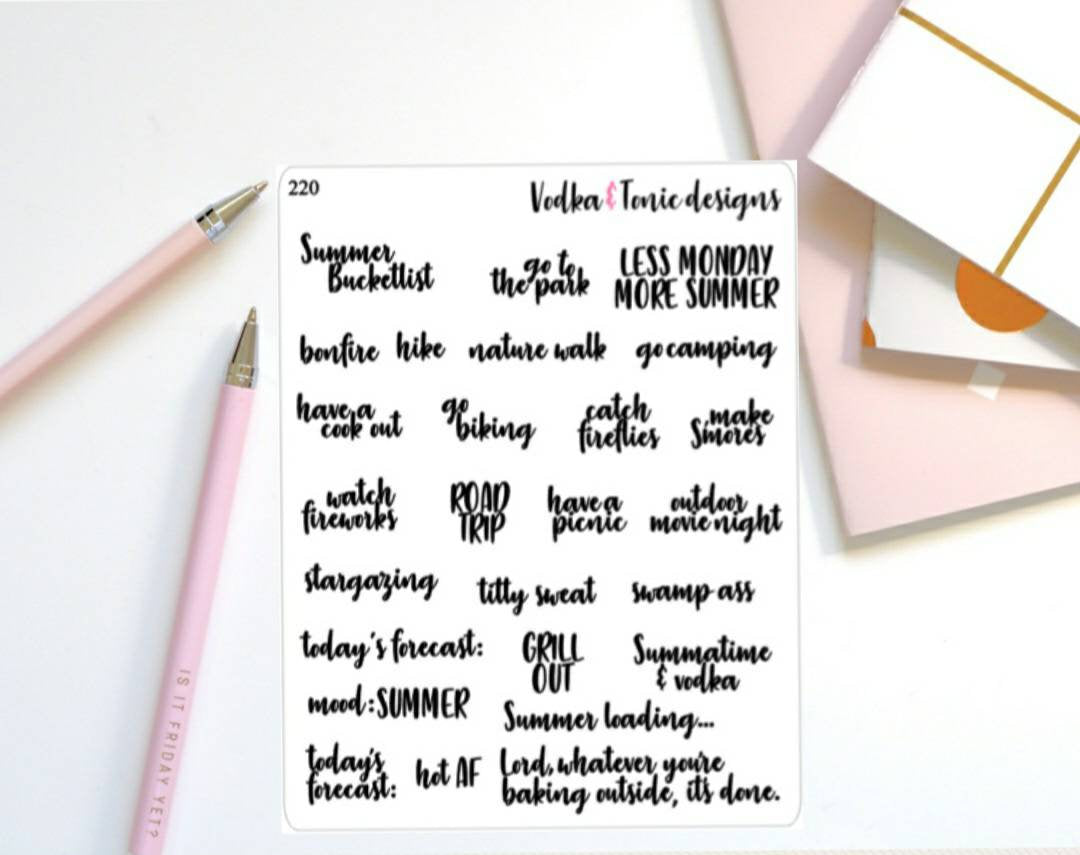 220
Vodka & Tonic designs
Summer
Bucketlist
go to
the park
LESS MONDAY
MORE SUMMER
bonfire
hike
nature walk
go camping
have a
cook out
go
biking
catch
fireflies
make
S'mores
watch
fireworks
ROAD
TRIP
have a
picnic
outdoor
movie night
stargazing
titty sweat
swamp ass
today's forecast:
GRILL
OUT
Summatime
& vodka
mood: SUMMER
Summer loading...
today's
forecast:
hot AF
Lord, whatever you're
baking outside, it's done.
IS IT FRIDAY YET?